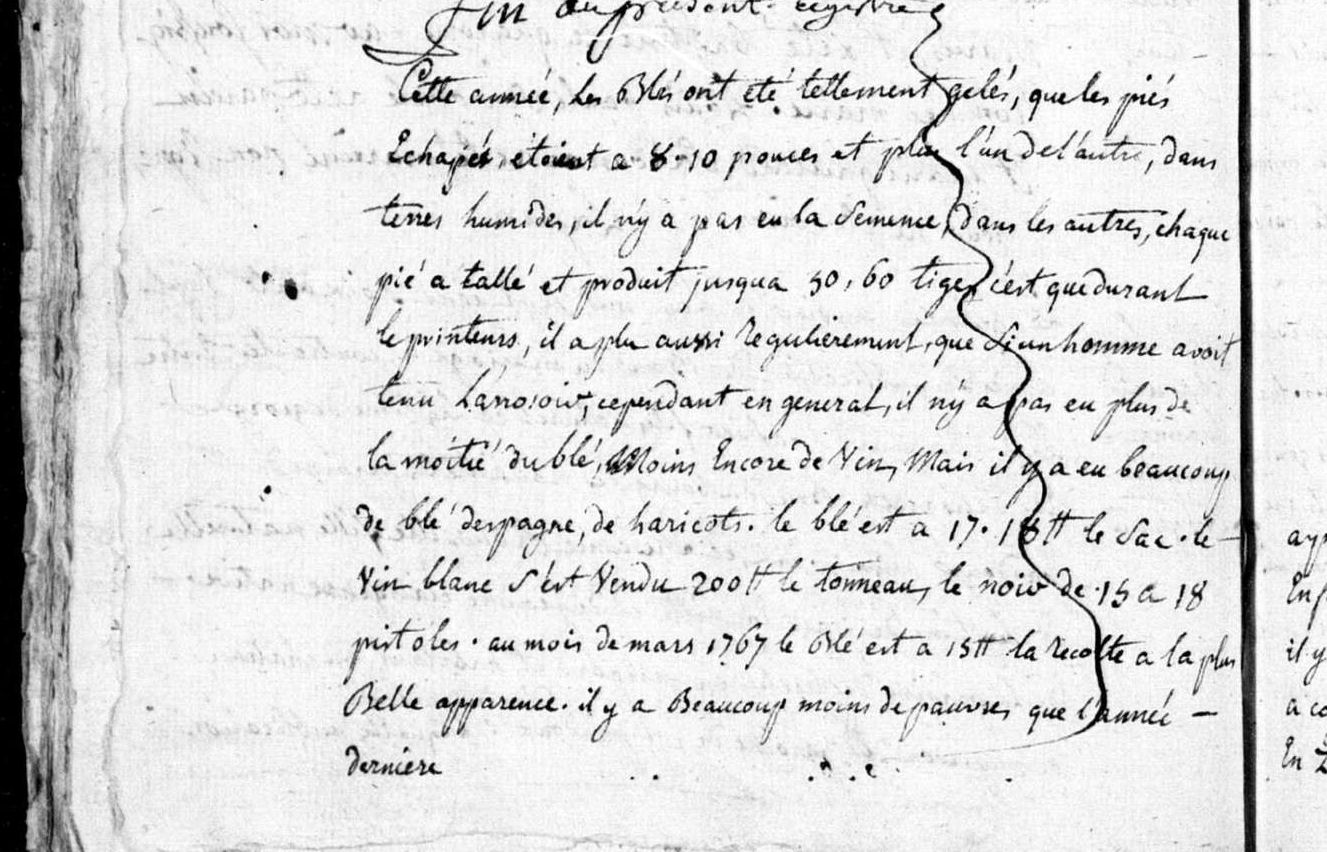 fin du présent registre
Cette année, les Blés ont eté tellement gelés, que les piés
Echapés etoient a 8.10 pouces et plus l'un de l'autre, dans
terres humides, il n'y a pas eu la Semence, dans les autres, chaque
pié a tallé et produit jusqua 50, 60 tiges c'est que durant
le printems, il a plu aussi regulièrement, que Si un homme avoit
tenu L'arrosoir, cependant en general, il n'y a pas eu plus de
la moitié du blé, Moins Encore de Vin, Mais il y a eu beaucoup
de blé despagne, de haricots. le blé est a 17. 18 ₶ le Sac. le
Vin blanc S'est Vendu 200 ₶ le tonneau, le noir de 15 a 18
pistoles. au mois de mars 1767 le Blé est a 15 ₶ la recolte a la plus
Belle apparence. il y a Beaucoup moins de pauvres que l'année
derniere
ay
En
il y
a co
En